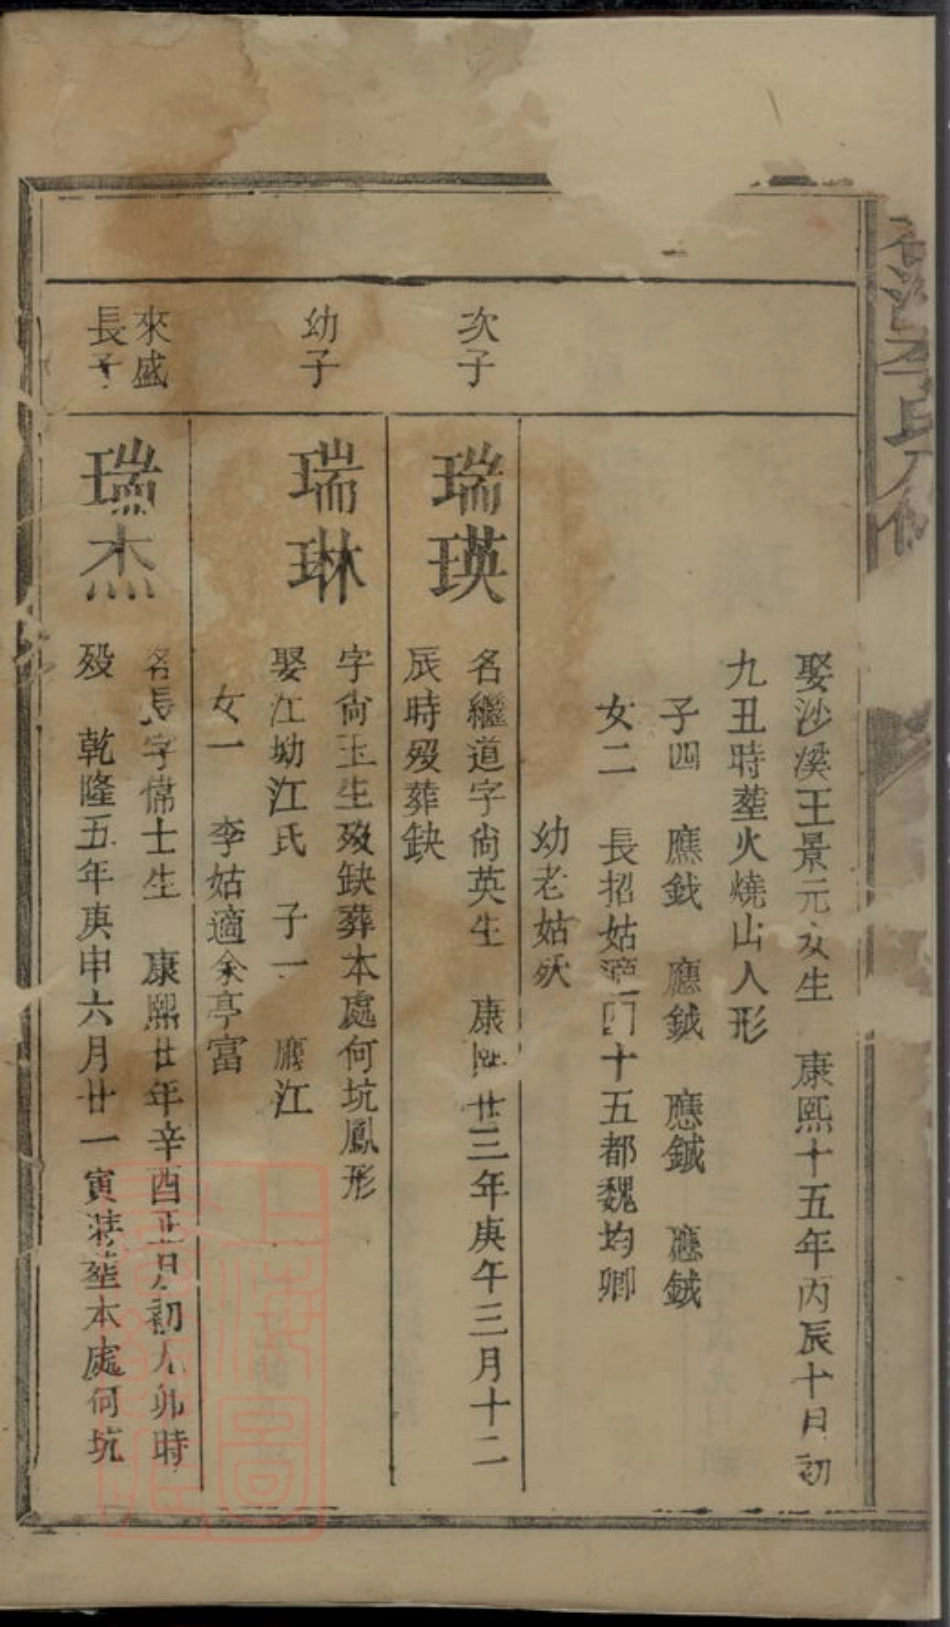 李氏
娶沙溪王景元女生 康熙十五年丙辰十月初
九丑時塟火燒山人形
子四 應鉞 應鉞 應鍼 應鉞
女二 長招姑適 十五都魏均卿
幼老姑殀
次子
瑞瑛
名繼道字尙英生 康熙廿三年庚午三月十二
辰時歿葬缺
幼子
瑞琳
字尙玉生歿缺葬本處何坑鳳形
娶江坳江氏 子一 應江
女一 李姑適余亭富
來盛
長子
瑞杰
名長字偉士生 康熙廿年辛酉正月初九卯時
歿 乾隆五年庚申六月廿一寅時塟本處何坑
上海圖書館藏